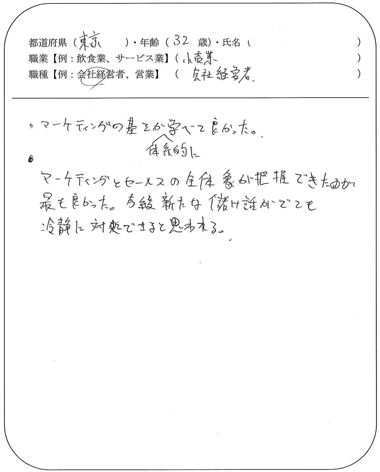 都道府県（東京 ）・年齢（32 歳）・氏名（ ）
職業【例：飲食業、サービス業】（小売業 ）
職種【例：会社経営者、営業】（ 会社経営者 ）
マーケティングの基をが学べて良かった。
体系的に
マーケティングとセールスの全体象が把握できたのが
最も良かった。今後新たな儲け話がでても
冷静に対処できると思われる。